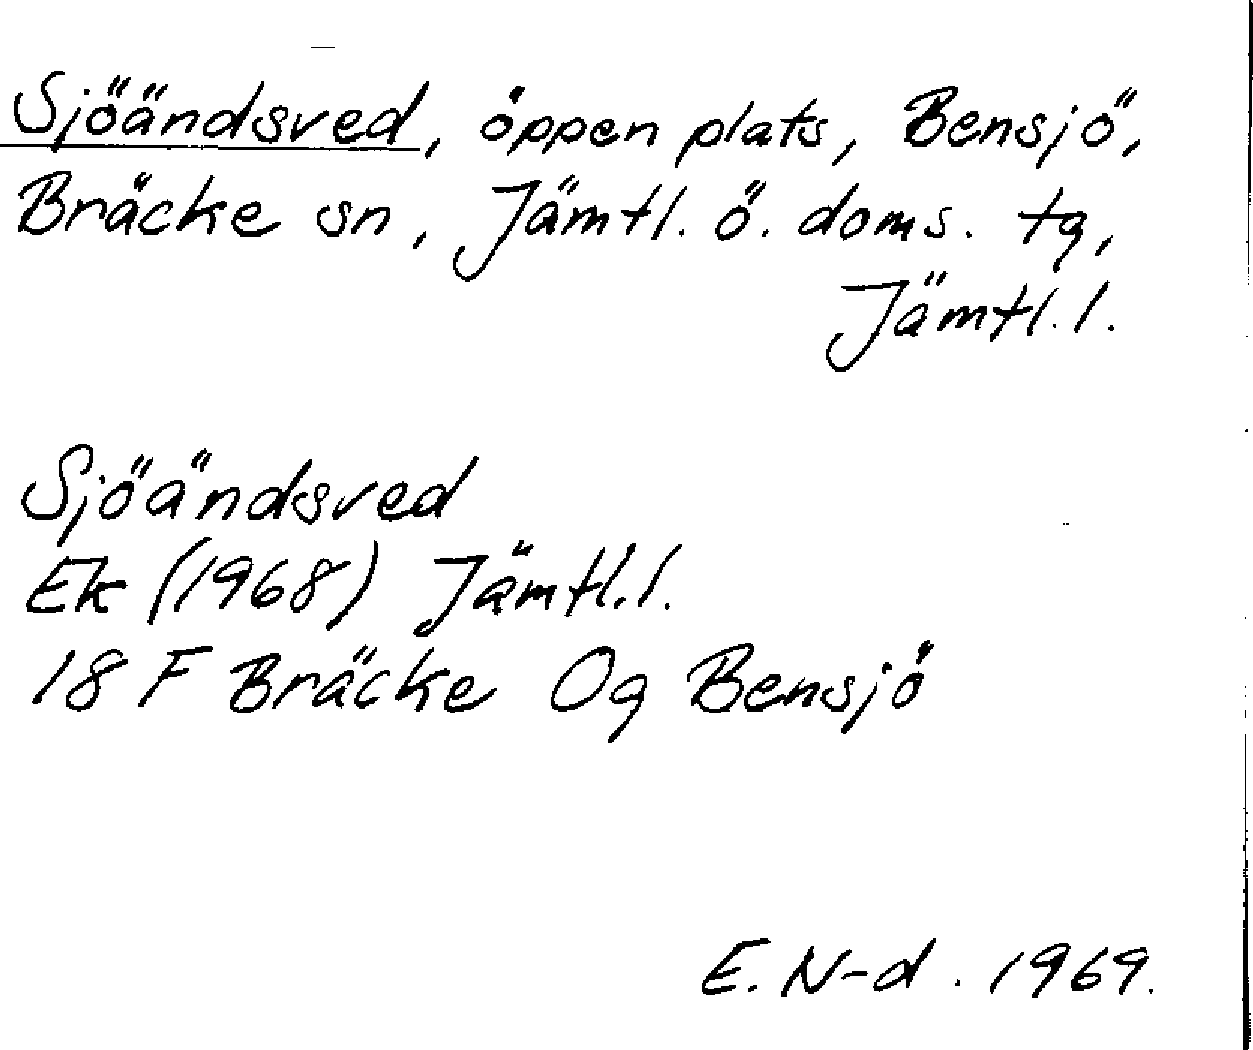 Sjöändsved, öppen plats, Bensjö,
Bräcke sn, Jämtl. ö. doms. tg,
Jämtl. l.
Sjöändsved
Ek (1968) Jämtl. l.
18 F Bräcke Og Bensjö
E. N-d. 1969.